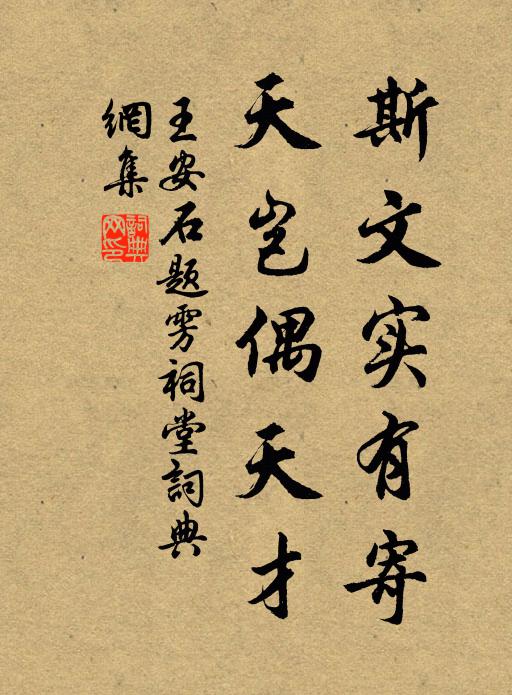 斯文实有寄
天岂偶天才
王安石题雱祠堂詞典
網集
詞典网印